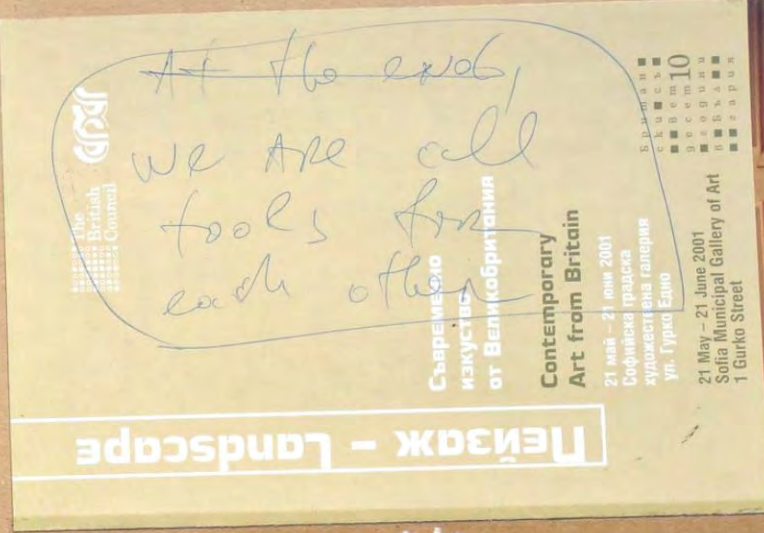 At the end,
we are all
tools for
each other
The
British
Council
Съвременно
изкуство
от Великобритания
Contemporary
Art from Britain
21 май – 21 юни 2001
Софийска градска
художествена галерия
ул. Гурко Едно
21 May – 21 June 2001
Sofia Municipal Gallery of Art
1 Gurko Street
Британ
ски съ
вет 10
десет
години
в Бъл
гария
Пейзаж – Landscape